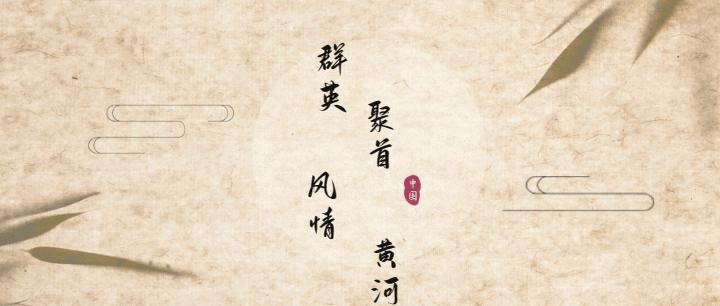 群英
聚首
中国
风情
黄河